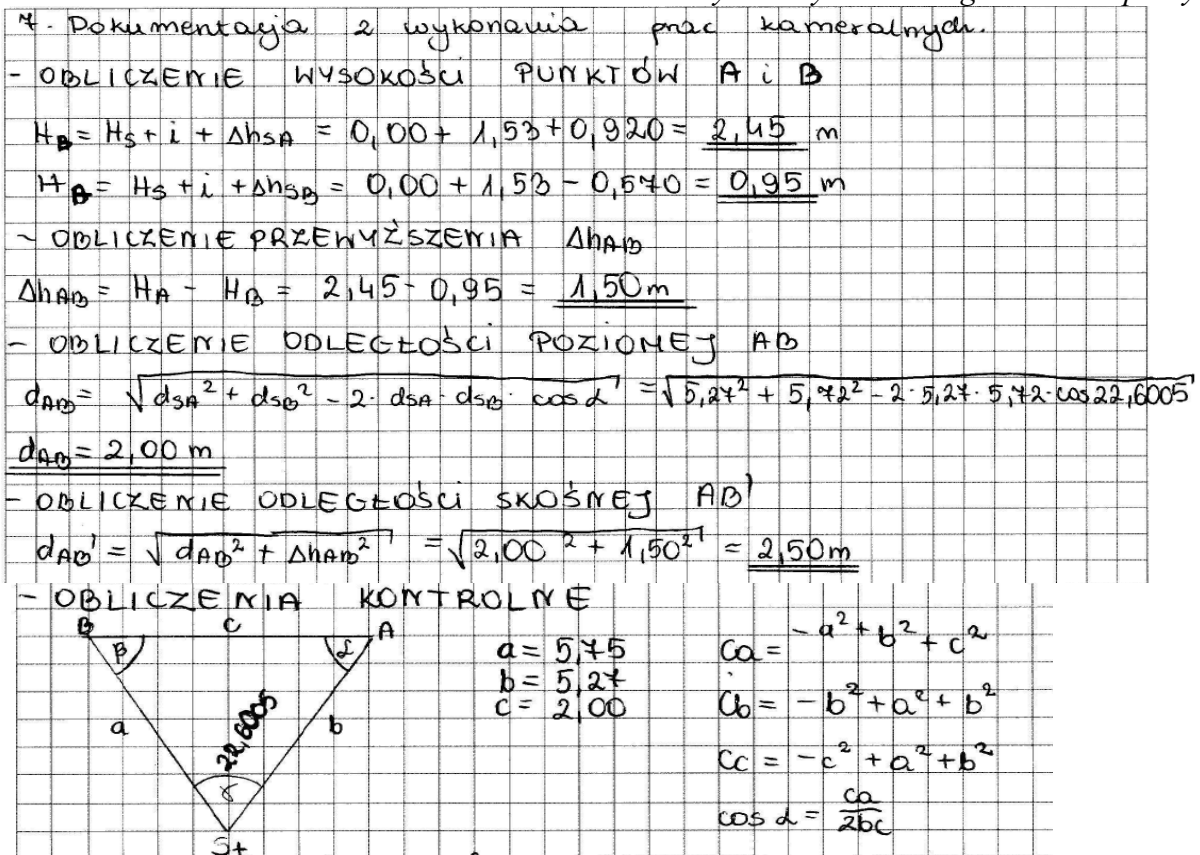 7. Dokumentacja z wykonania prac kameralnych.
- OBLICZENIE WYSOKOŚCI PUNKTÓW A i B
H_B = H_S + i + Δh_SA = 0,00 + 1,53 + 0,920 = 2,45 m
H_B = H_S + i + Δh_SB = 0,00 + 1,53 - 0,570 = 0,95 m
- OBLICZENIE PRZEWYŻSZENIA Δh_AB
Δh_AB = H_A - H_B = 2,45 - 0,95 = 1,50 m
- OBLICZENIE ODLEGŁOŚCI POZIOMEJ AB
d_AB = √(d_SA² + d_SB² - 2· d_SA · d_SB · cos α) = √(5,27² + 5,72² - 2·5,27·5,72·cos22,6005)
d_AB = 2,00 m
- OBLICZENIE ODLEGŁOŚCI SKOŚNEJ AB'
d_AB' = √(d_AB² + Δh_AB²) = √(2,00² + 1,50²) = 2,50 m
- OBLICZENIA KONTROLNE
B c A
β α
a b
22,6005
γ
St
a = 5,75
b = 5,27
c = 2,00
Ca = -a² + b² + c²
Cb = -b² + a² + b²
Cc = -c² + a² + b²
cos α = ca/2bc